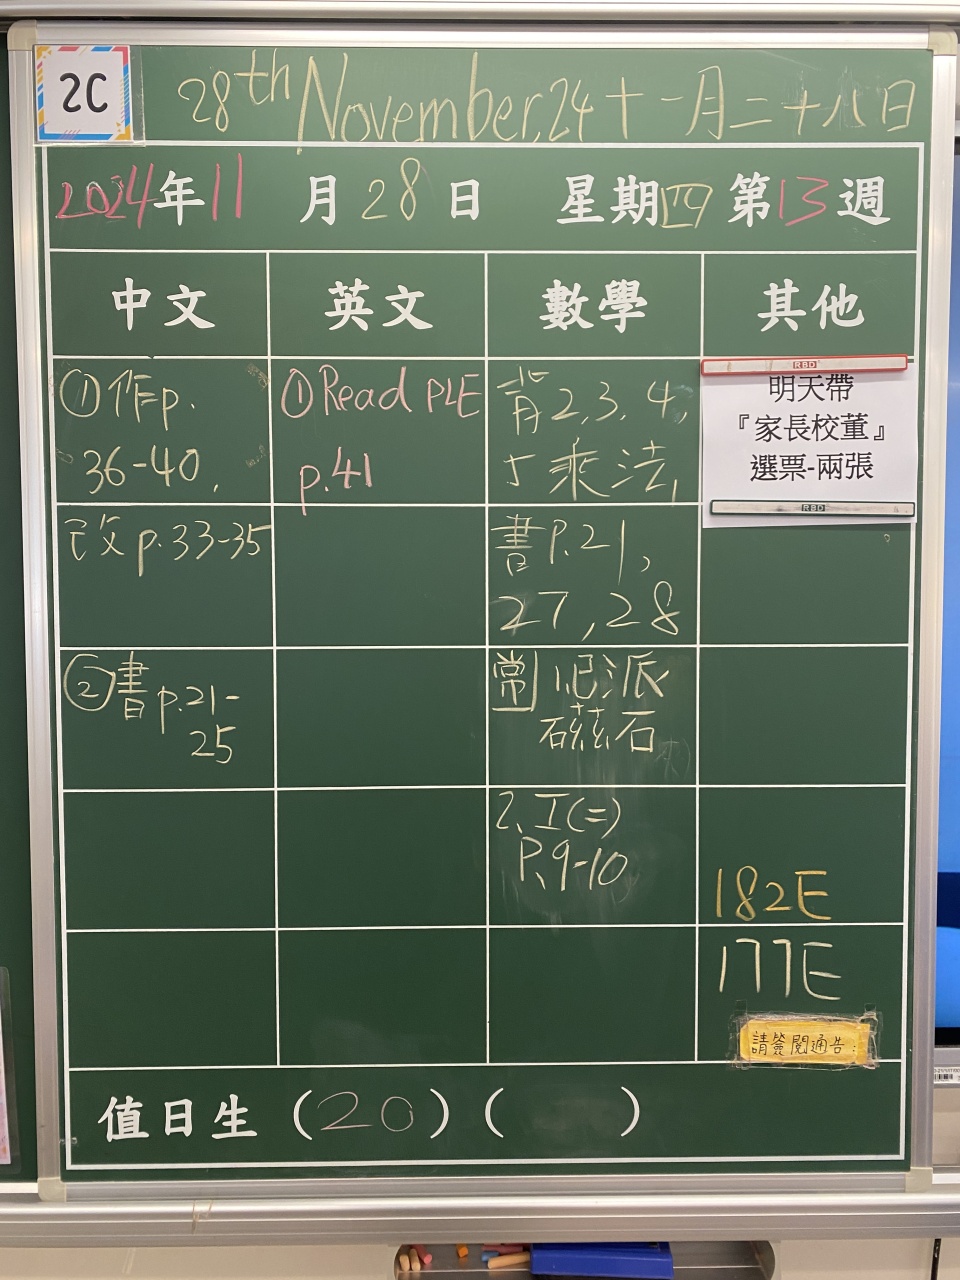 2C
28th November,24 十一月二十八日
2024年11月28日 星期四 第13週
中文
英文
數學
其他
①作p.
36-40.
改p.33-35
②書p.21-
25
①Read PLE
p.41
背2,3,4,
5乘法,
書P.21,
27,28
常 1.記派
磁石
2.工(二)
P.9-10
RBD
明天帶
『家長校董』
選票-兩張
RBD
182E
177E
請簽閱通告:
值日生 (20) ( )